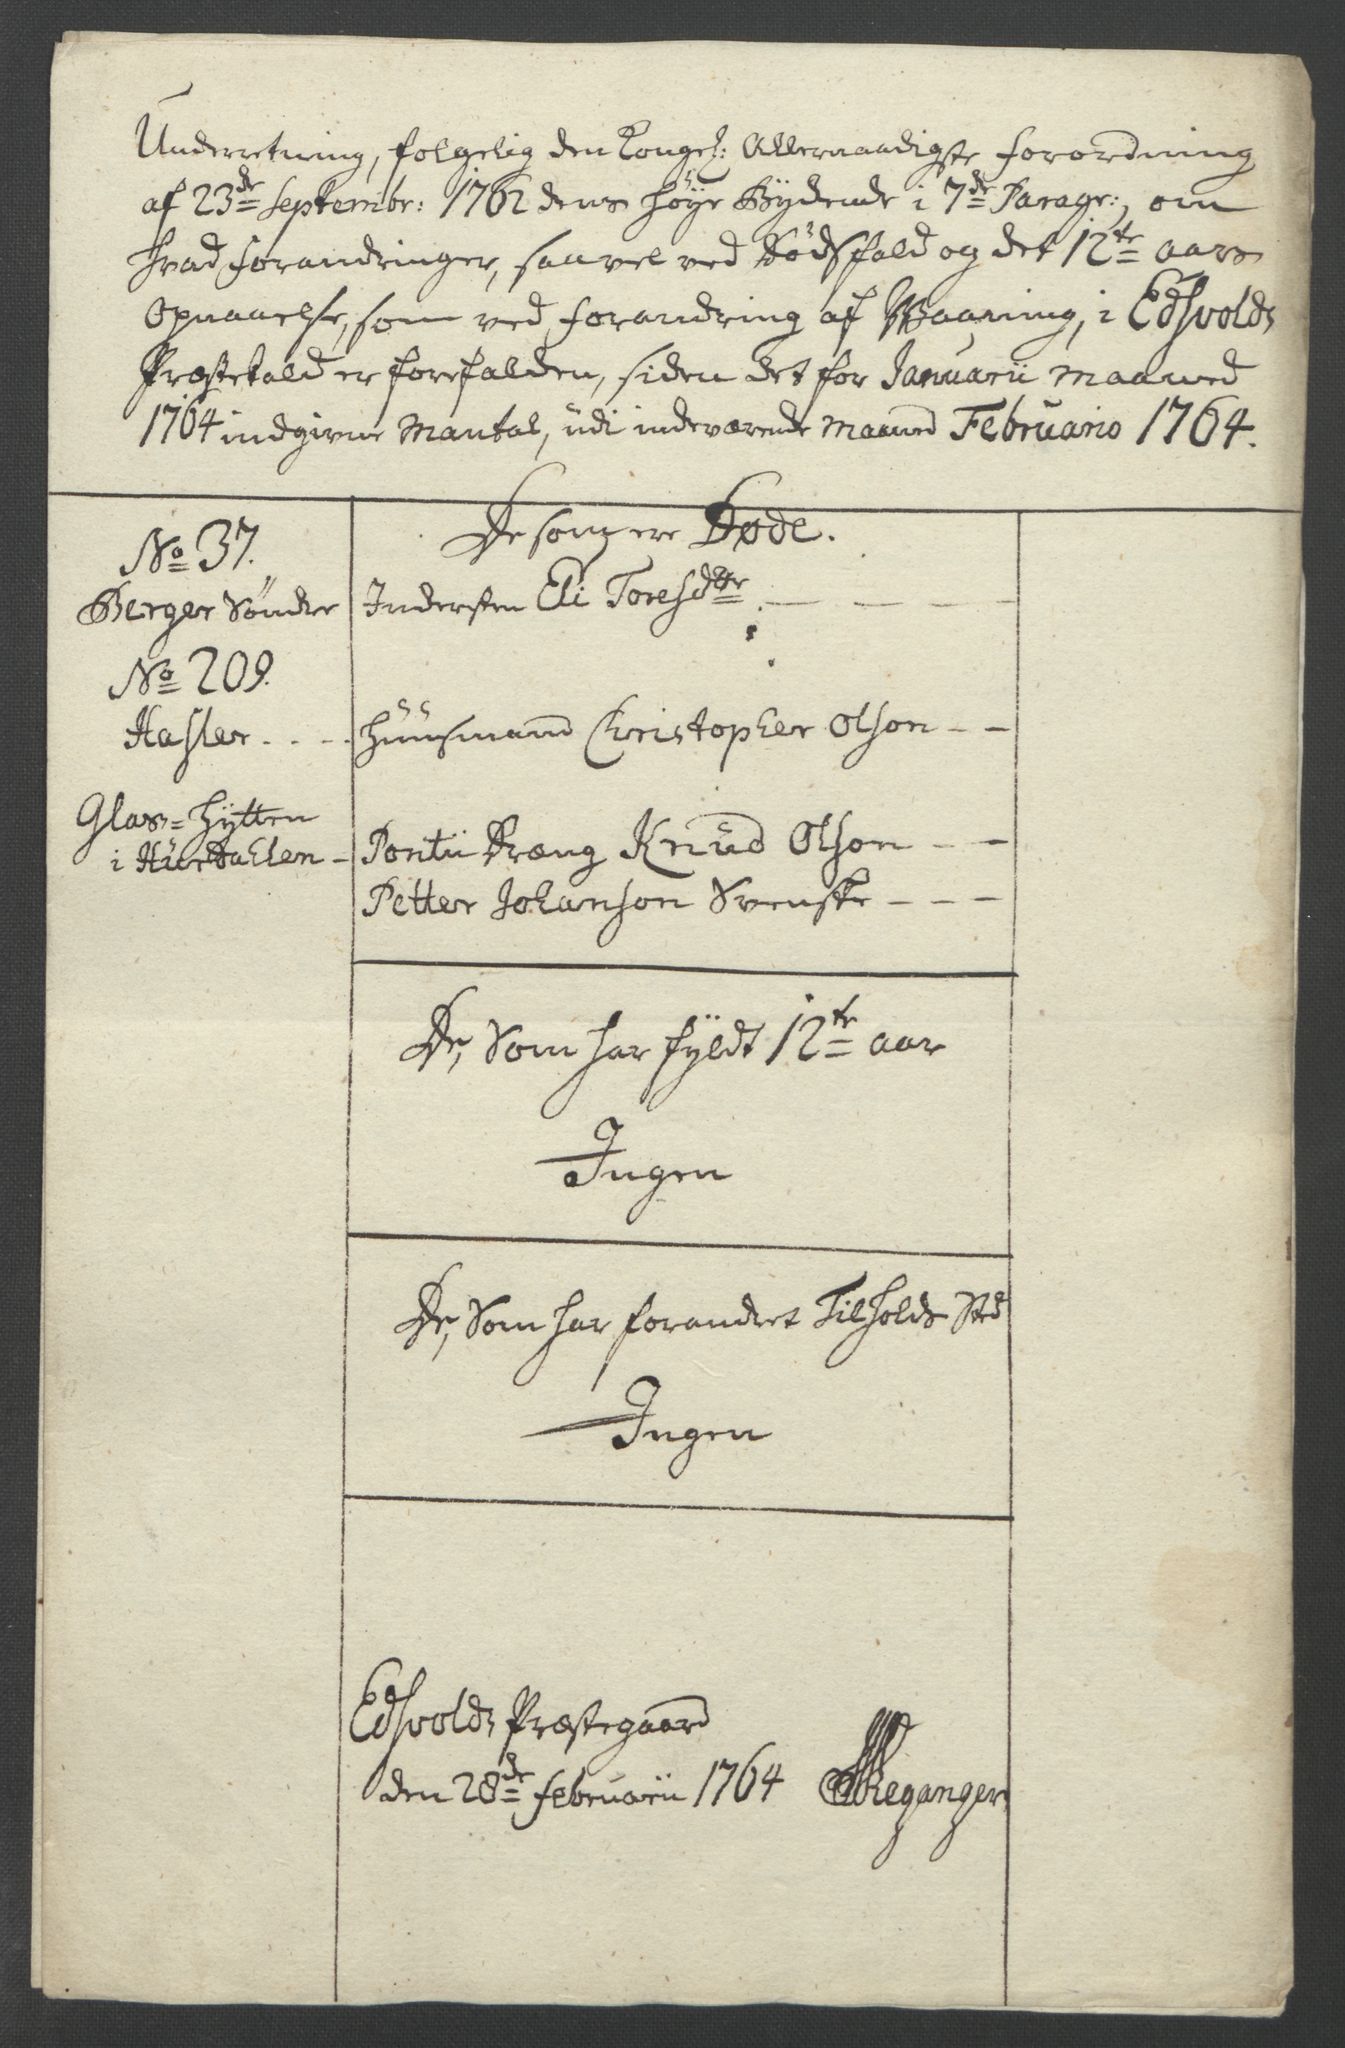 Underretning, følgelig den Kongel: Allernaadigste forordning
af 23de Septembr: 1762 dens høye Bydende i 7de Paragr:, om
hvad forandringer, saavel ved Dødsfald og det 12te aars
Opnaaelse, som ved forandring af Waaning, i Edsvolds
Præstekald er forefalden, siden det for Januarii Maaned
1764 indgivne Mantal, udi indeværende Maaned Februario 1764.
De som ere Døde.
No 37.
Berger Søndre Indersten Eli Toresdttr
No 209.
Hasler Huusmand Christopher Olson
Glas-Hytten
i Hurdahlen Pontii Dræng Knud Olson
Petter Johanson Svenske
De, Som har fyldt 12te aar
Ingen
De, Som har forandret Tilholds Sted
Ingen
Edsvolds Præstegaard
den 28de februarii 1764